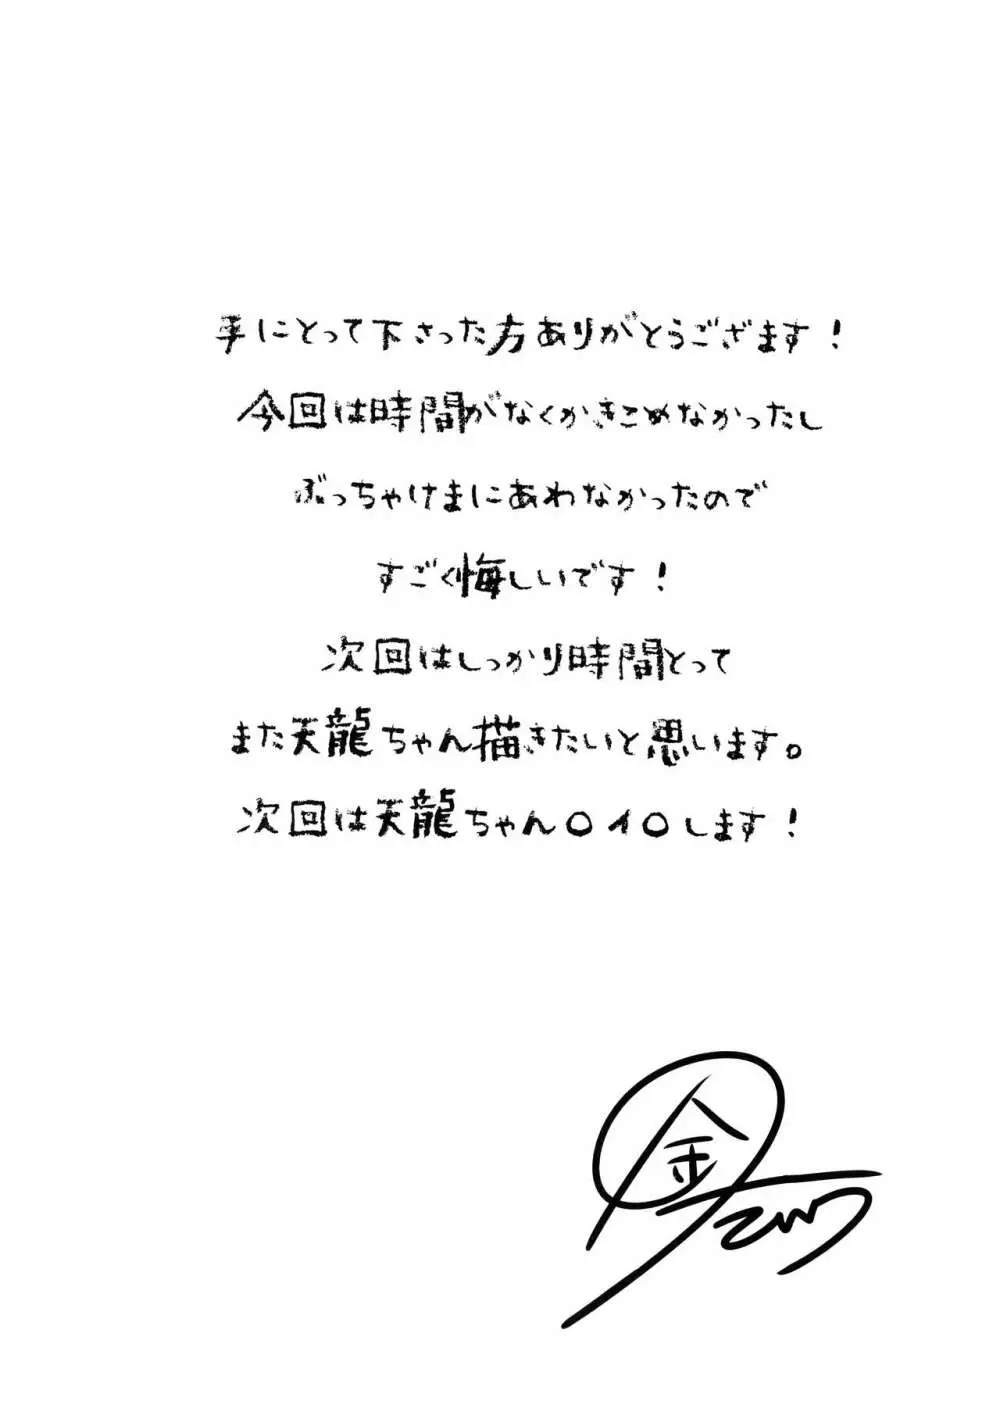 手にとって下さった方ありがとうござます！
今回は時間がなくかきこめなかったし
ぶっちゃけまにあわなかったので
すごく悔しいです！
次回はしっかり時間とって
また天龍ちゃん描きたいと思います。
次回は天龍ちゃん〇イ〇します！
金